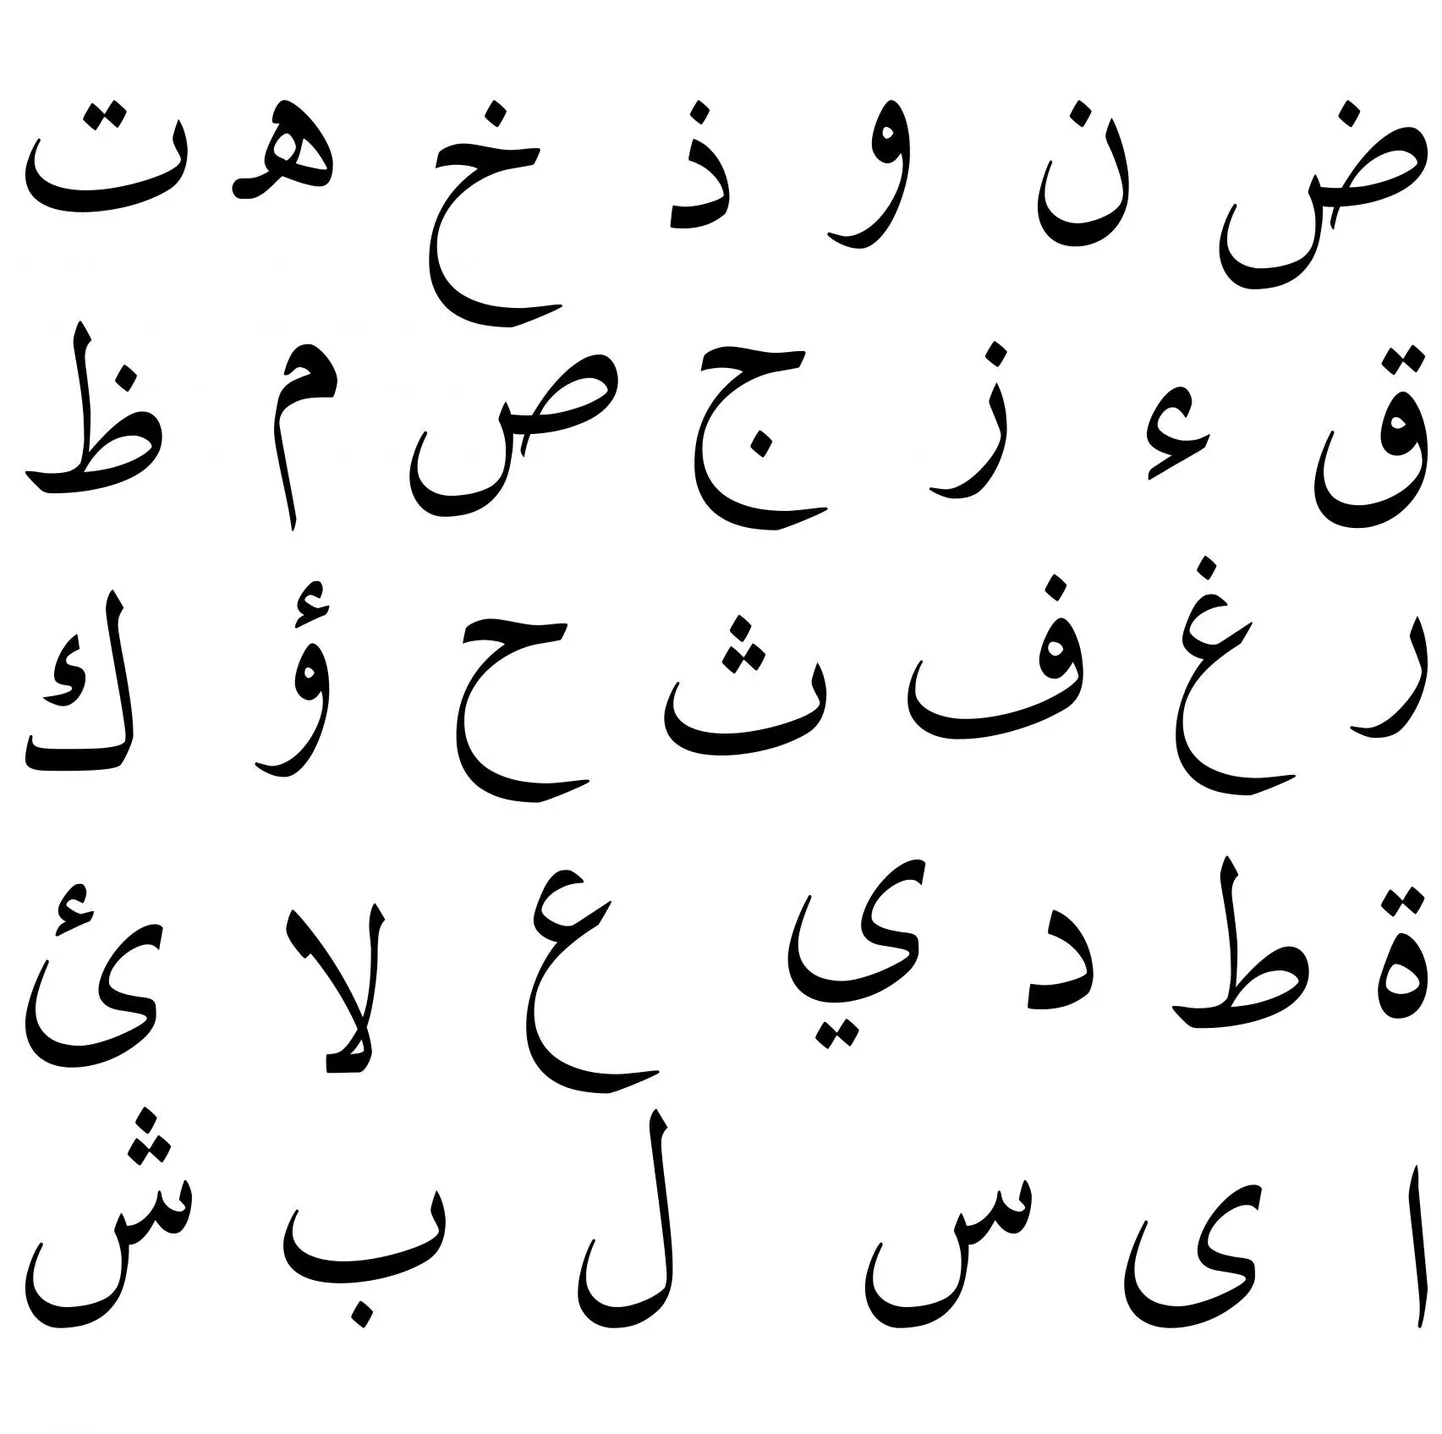 ض ن و ذ خ ه ت
ق ء ز ج ص م ظ
ر غ ف ث ح ؤ ك
ة ط د ي ع لا ئ
ا ى س ل ب ش